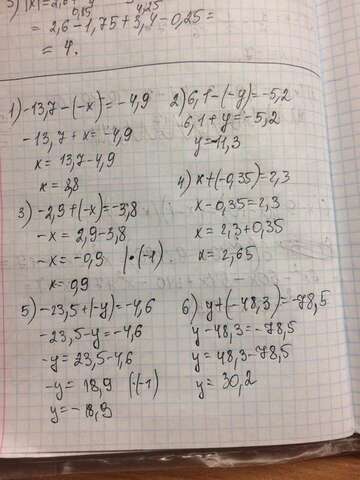 = 2,6-1,75+3,4-0,25=
= 4.
1) -13,7-(-x)=-4,9
-13,7+x=-4,9
x=13,7-4,9
x=8,8
2) 6,1-(-y)=-5,2
6,1+y=-5,2
y=-11,3
3) -2,9+(-x)=-3,8
-x=2,9-3,8
-x=-0,9 |·(-1).
x=0,9
4) x+(-0,35)=2,3
x-0,35=2,3
x=2,3+0,35
x=2,65
5) -23,5+(-y)=-4,6
-23,5-y=-4,6
-y=23,5-4,6
-y=18,9 |·(-1)
y=-18,9
6) y+(-48,3)=-78,5
y-48,3=-78,5
y=48,3-78,5
y=30,2